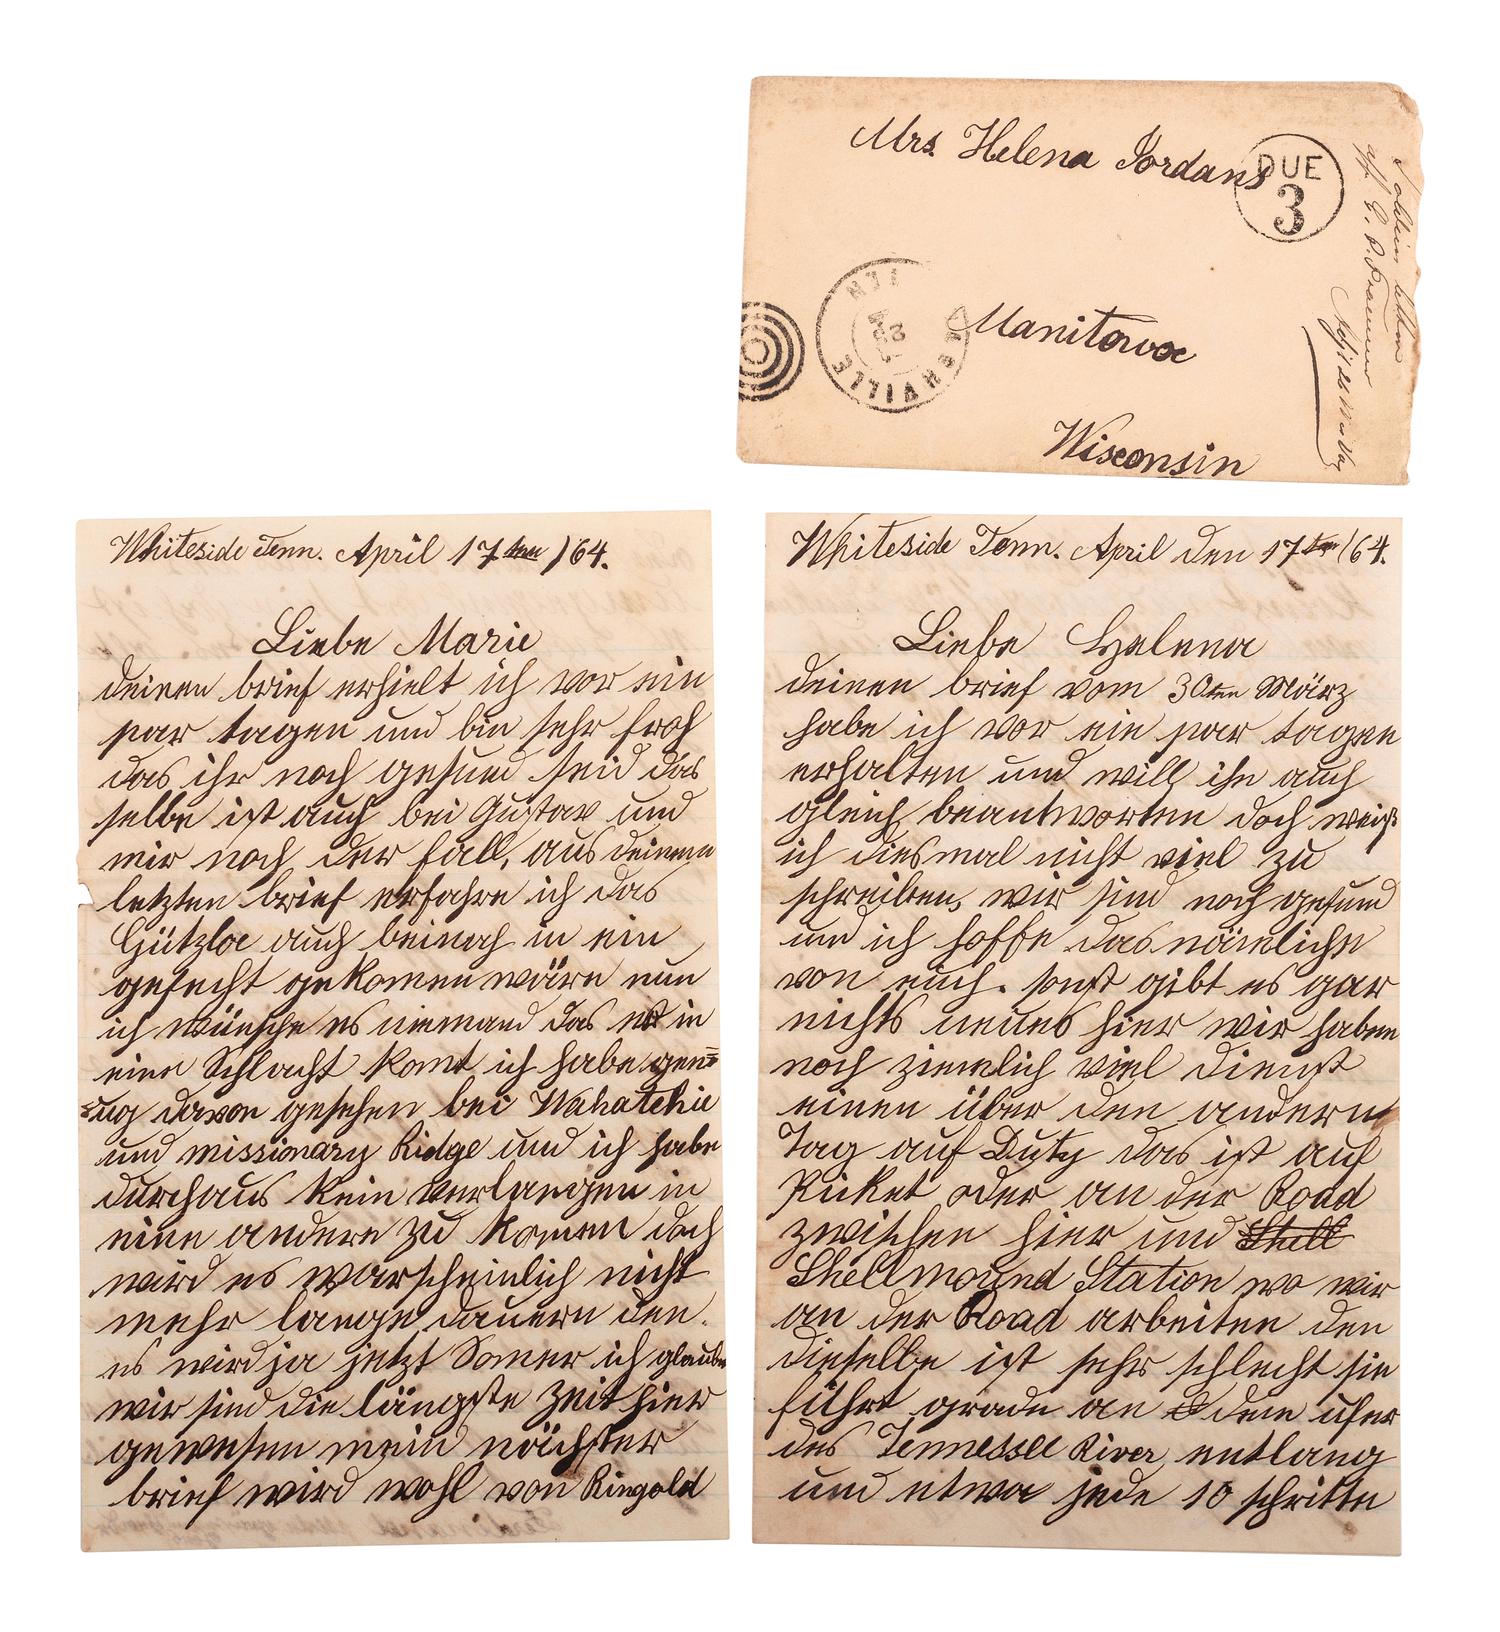 Mrs. Helena Jordans
DUE
3
Manitowoc
Wisconsin
NASHVILLE
TEN
Soldiers letter
Whiteside Tenn. April 17ten /64.
Liebe Marie
deinen brief erhielt ich vor ein
par tagen und bin sehr froh
das ihr noch gesund seid das
selbe ist auch bei Gustav und
mir noch der fall, aus deinem
letzten brief erfahre ich das
Gützloe auch beinah in ein
gefecht gekomen wäre nun
ich wünsche es niemand das er in
eine Schlacht komt ich habe gen=
=ug davon gesehen bei Wahatchie
und missionary Ridge und ich habe
durchaus kein verlangen in
eine andere zu komen doch
wird es warscheinlich nicht
mehr lange dauern den.
es wird ja jetzt Somer ich glaube
wir sind die längste Zeit hier
gewesen mein nächster
brief wird wohl von Ringold
Whiteside Tenn. April den 17ten /64.
Liebe Helena
deinen brief vom 30ten März
habe ich vor ein par tagen
erhalten und will ihn auch
gleich beantworten doch weiß
ich diesmal nicht viel zu
schreiben, wir sind noch gesund
und ich hoffe das nämliche
von euch. sonst gibt es gar
nichts neues hier wir haben
noch ziemlich viel dienst
einen über den andern
Tag auf Duty das ist auf
Picket oder an der Road
zwischen hier und Shell
Shellmound Station wo wir
an der Road arbeiten den
dieselbe ist sehr schlecht sie
führt grade an dem ufer
des Tennessee River entlang
und etwa jede 10 schritte